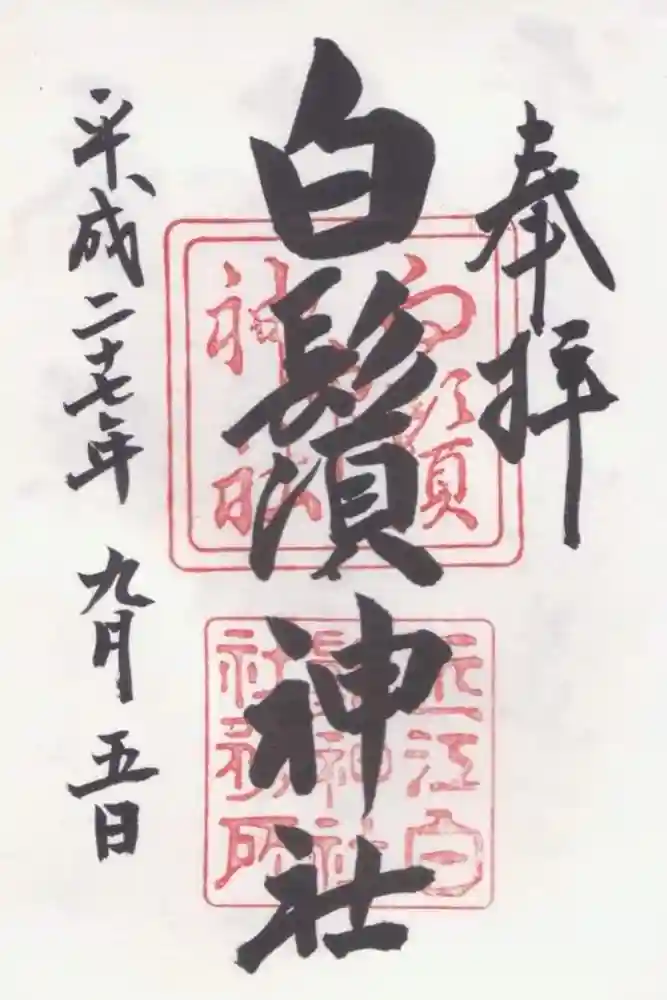 奉拝
白鬚神社
平成二十七年 九月 五日
白須
神社
近江白
鬚神社
社務所